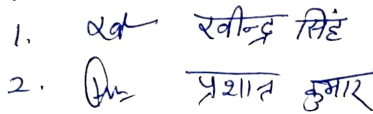 1. रवीन्द्र सिंह
2. प्रशात कुमार